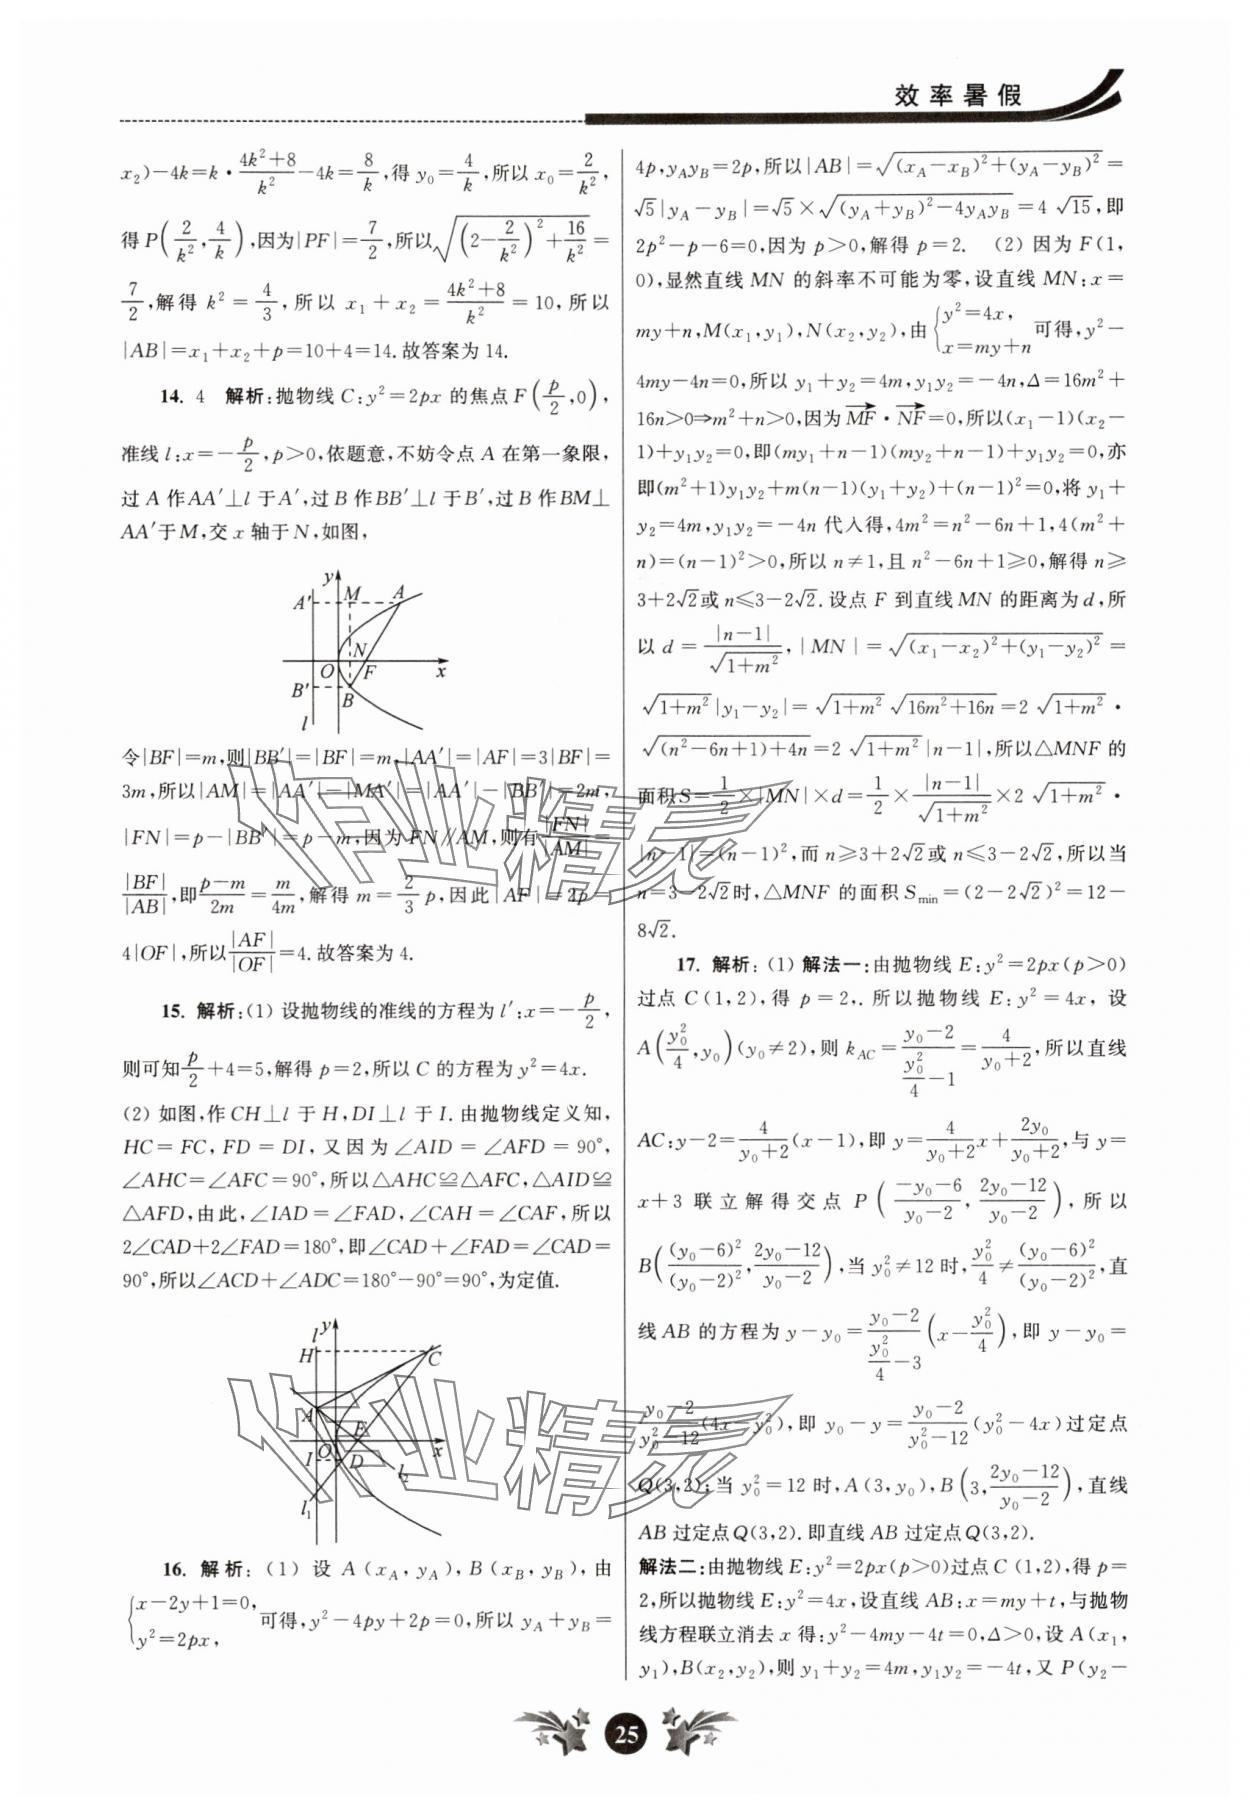 效率暑假
x₂)−4k=k·(4k²+8)/k²−4k=8/k,得 y₀=4/k,所以 x₀=2/k²,
得P(2/k²,4/k),因为|PF|=7/2,所以√((2−2/k²)²+16/k²)=
7/2,解得 k²=4/3,所以 x₁+x₂=(4k²+8)/k²=10,所以
|AB|=x₁+x₂+p=10+4=14.故答案为 14.
14. 4 解析:抛物线 C:y²=2px 的焦点 F(p/2,0),
准线 l:x=−p/2,p>0,依题意,不妨令点 A 在第一象限,
过 A 作AA′⊥l 于A′,过 B 作BB′⊥l 于B′,过 B 作BM⊥
AA′于M,交 x 轴于 N,如图,
y
A′ M A
N
O F x
B′ B
l
令|BF|=m,则|BB′|=|BF|=m,|AA′|=|AF|=3|BF|=
3m,所以|AM|=|AA′|−|MA′|=|AA′|−|BB′|=2m,
|FN|=p−|BB′|=p−m,因为FN∥AM,则有|FN|/|AM|=
|BF|/|AB|,即(p−m)/2m=m/4m,解得 m=2/3 p,因此|AF|=2p
4|OF|,所以|AF|/|OF|=4.故答案为 4.
15. 解析:(1) 设抛物线的准线的方程为 l′:x=−p/2,
则可知p/2+4=5,解得 p=2,所以 C 的方程为 y²=4x.
(2) 如图,作CH⊥l 于 H,DI⊥l 于 I.由抛物线定义知,
HC=FC,FD=DI,又因为∠AID=∠AFD=90°,
∠AHC=∠AFC=90°,所以△AHC≌△AFC,△AID≌
△AFD,由此,∠IAD=∠FAD,∠CAH=∠CAF,所以
2∠CAD+2∠FAD=180°,即∠CAD+∠FAD=∠CAD=
90°,所以∠ACD+∠ADC=180°−90°=90°,为定值.
l y
H C
A
F
O x
I D l₂
l₁
16. 解析:(1) 设 A(x_A,y_A),B(x_B,y_B),由
{x−2y+1=0, y²=2px, 可得,y²−4py+2p=0,所以 y_A+y_B=
4p,y_Ay_B=2p,所以|AB|=√((x_A−x_B)²+(y_A−y_B)²)=
√5|y_A−y_B|=√5×√((y_A+y_B)²−4y_Ay_B)=4√15,即
2p²−p−6=0,因为 p>0,解得 p=2. (2) 因为 F(1,
0),显然直线 MN 的斜率不可能为零,设直线 MN:x=
my+n,M(x₁,y₁),N(x₂,y₂),由{y²=4x, x=my+n 可得,y²−
4my−4n=0,所以 y₁+y₂=4m,y₁y₂=−4n,Δ=16m²+
16n>0⇒m²+n>0,因为MF→·NF→=0,所以(x₁−1)(x₂−
1)+y₁y₂=0,即(my₁+n−1)(my₂+n−1)+y₁y₂=0,亦
即(m²+1)y₁y₂+m(n−1)(y₁+y₂)+(n−1)²=0,将 y₁+
y₂=4m,y₁y₂=−4n 代入得,4m²=n²−6n+1,4(m²+
n)=(n−1)²>0,所以 n≠1,且 n²−6n+1≥0,解得 n≥
3+2√2或 n≤3−2√2.设点 F 到直线MN 的距离为 d,所
以 d=|n−1|/√(1+m²),|MN|=√((x₁−x₂)²+(y₁−y₂)²)=
√(1+m²)|y₁−y₂|=√(1+m²)√(16m²+16n)=2√(1+m²)·
√((n²−6n+1)+4n)=2√(1+m²)|n−1|,所以△MNF 的
面积S=1/2×|MN|×d=1/2×|n−1|/√(1+m²)×2√(1+m²)·
|n−1|=(n−1)²,而 n≥3+2√2或 n≤3−2√2,所以当
n=3−2√2时,△MNF 的面积 S_min=(2−2√2)²=12−
8√2.
17. 解析:(1) 解法一:由抛物线 E:y²=2px(p>0)
过点 C(1,2),得 p=2,.所以抛物线 E:y²=4x,设
A(y₀²/4,y₀)(y₀≠2),则 k_AC=(y₀−2)/(y₀²/4−1)=4/(y₀+2),所以直线
AC:y−2=4/(y₀+2)(x−1),即 y=4/(y₀+2)x+2y₀/(y₀+2),与 y=
x+3 联立解得交点 P((−y₀−6)/(y₀−2),(2y₀−12)/(y₀−2)),所以
B((y₀−6)²/(y₀−2)²,(2y₀−12)/(y₀−2)),当 y₀²≠12 时,y₀²/4≠(y₀−6)²/(y₀−2)²,直
线 AB 的方程为 y−y₀=(y₀−2)/(y₀²/4−3)(x−y₀²/4),即 y−y₀=
(y₀−2)/(y₀²−12)(4x−y₀²),即 y₀−y=(y₀−2)/(y₀²−12)(y₀²−4x)过定点
Q(3,2);当 y₀²=12 时,A(3,y₀),B(3,(2y₀−12)/(y₀−2)),直线
AB 过定点Q(3,2).即直线 AB 过定点Q(3,2).
解法二:由抛物线 E:y²=2px(p>0)过点 C (1,2),得 p=
2,所以抛物线 E:y²=4x,设直线 AB:x=my+t,与抛物
线方程联立消去 x 得:y²−4my−4t=0,Δ>0,设 A(x₁,
y₁),B(x₂,y₂),则 y₁+y₂=4m,y₁y₂=−4t,又 P(y₂−
作业精灵
作业精灵
25